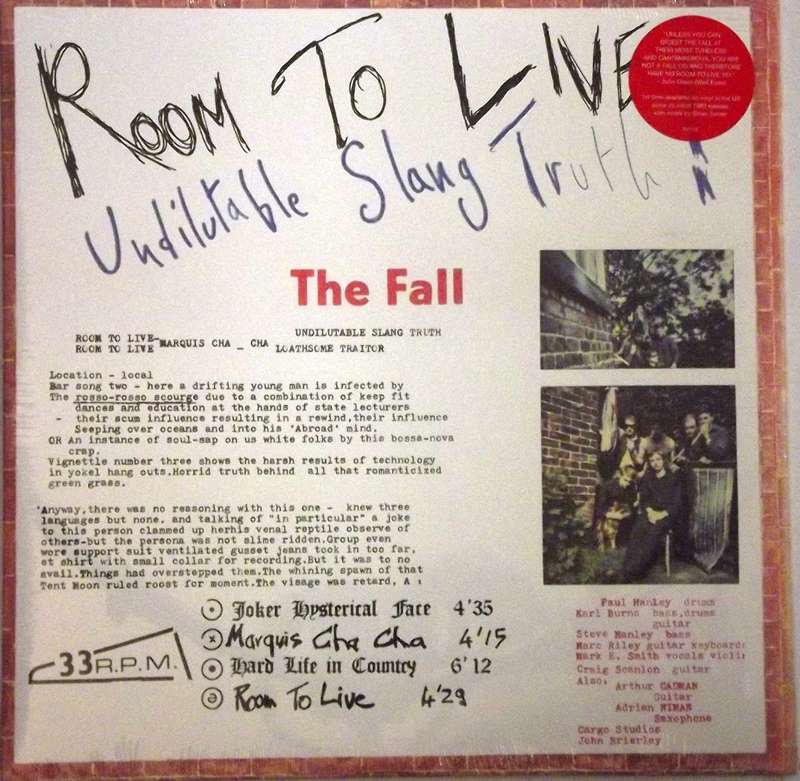 ROOM TO LIVE
Undilutable Slang Truth!
"UNLESS YOU CAN
DIGEST THE FALL AT
THEIR MOST TUNELESS
AND CANTANKEROUS, YOU ARE
NOT A FALL FAN AND THEREFORE
HAVE NO ROOM TO LIVE YET."
The Fall
UNDILUTABLE SLANG TRUTH
ROOM TO LIVE-MARQUIS CHA _ CHA
ROOM TO LIVE LOATHSOME TRAITOR
Location - local
Bar song two - here a drifting young man is infected by
The rosso-rosso scourge due to a combination of keep fit
dances and education at the hands of state lecturers
- their scum influence resulting in a rewind,their influence
Seeping over oceans and into his 'Abroad' mind.
OR An instance of soul-sap on us white folks by this bossa-nova
crap.
Vignettle number three shows the harsh results of technology
in yokel hang outs.Horrid truth behind all that romanticized
green grass.
'Anyway,there was no reasoning with this one - knew three
languages but none. and talking of "in particular" a joke
to this person clammed up herhis venal reptile observe of
others-but the persona was not slime ridden.Group even
wore support suit ventilated gusset jeans took in too far,
et shirt with small collar for recording.But it was to no
avail.Things had overstepped them.The whining spawn of that
Tent Moon ruled roost for moment.The visage was retard, A
Joker Hysterical Face 4'35
Marquis Cha Cha 4'15
Hard Life in Country 6'12
Room To Live 4'29
33 R.P.M.
Paul Hanley drums
Karl Burns bass,drums
guitar
Steve Hanley bass
Marc Riley guitar keyboard
Mark E. Smith vocals violi
Craig Scanlon guitar
Also;
Arthur CADMAN
Guitar
Adrian NIMAN
Saxophone
Cargo Studios
John Brierley